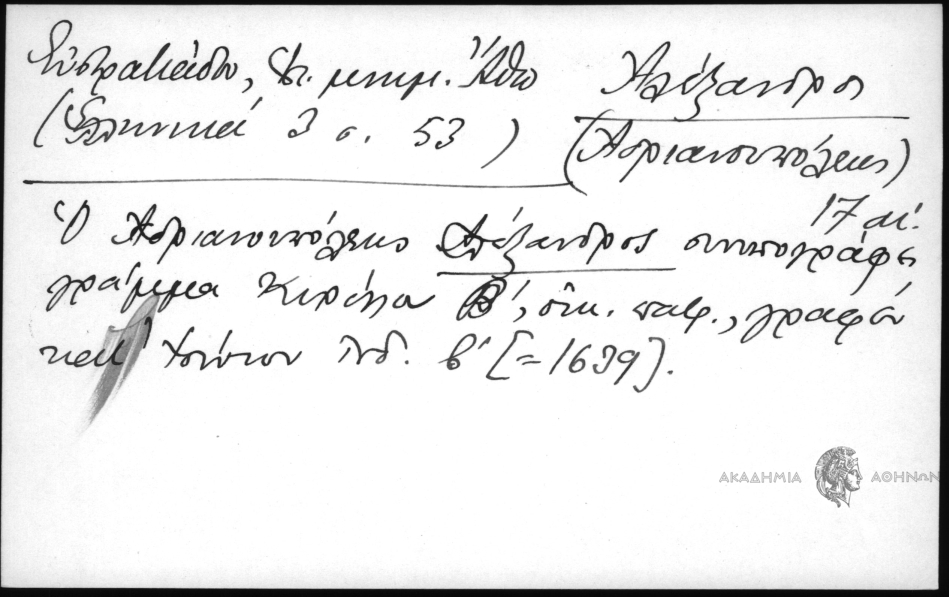 Εὐστρατιάδου, Ἱστ. μνημ. Ἄθω
(Ἑλληνικά 3 σ. 53)
Ἀλέξανδρος
(Ἀδριανουπόλεως)
17 αἰ.
Ὁ Ἀδριανουπόλεως Ἀλέξανδρος συνυπογράφει
γράμμα Κυρίλλου Β΄, οἰκ. πατρ., γραφὲν
κατ' Ἰούνιον Ἰνδ. β΄ [=1639].
ΑΚΑΔΗΜΙΑ ΑΘΗΝΩΝ